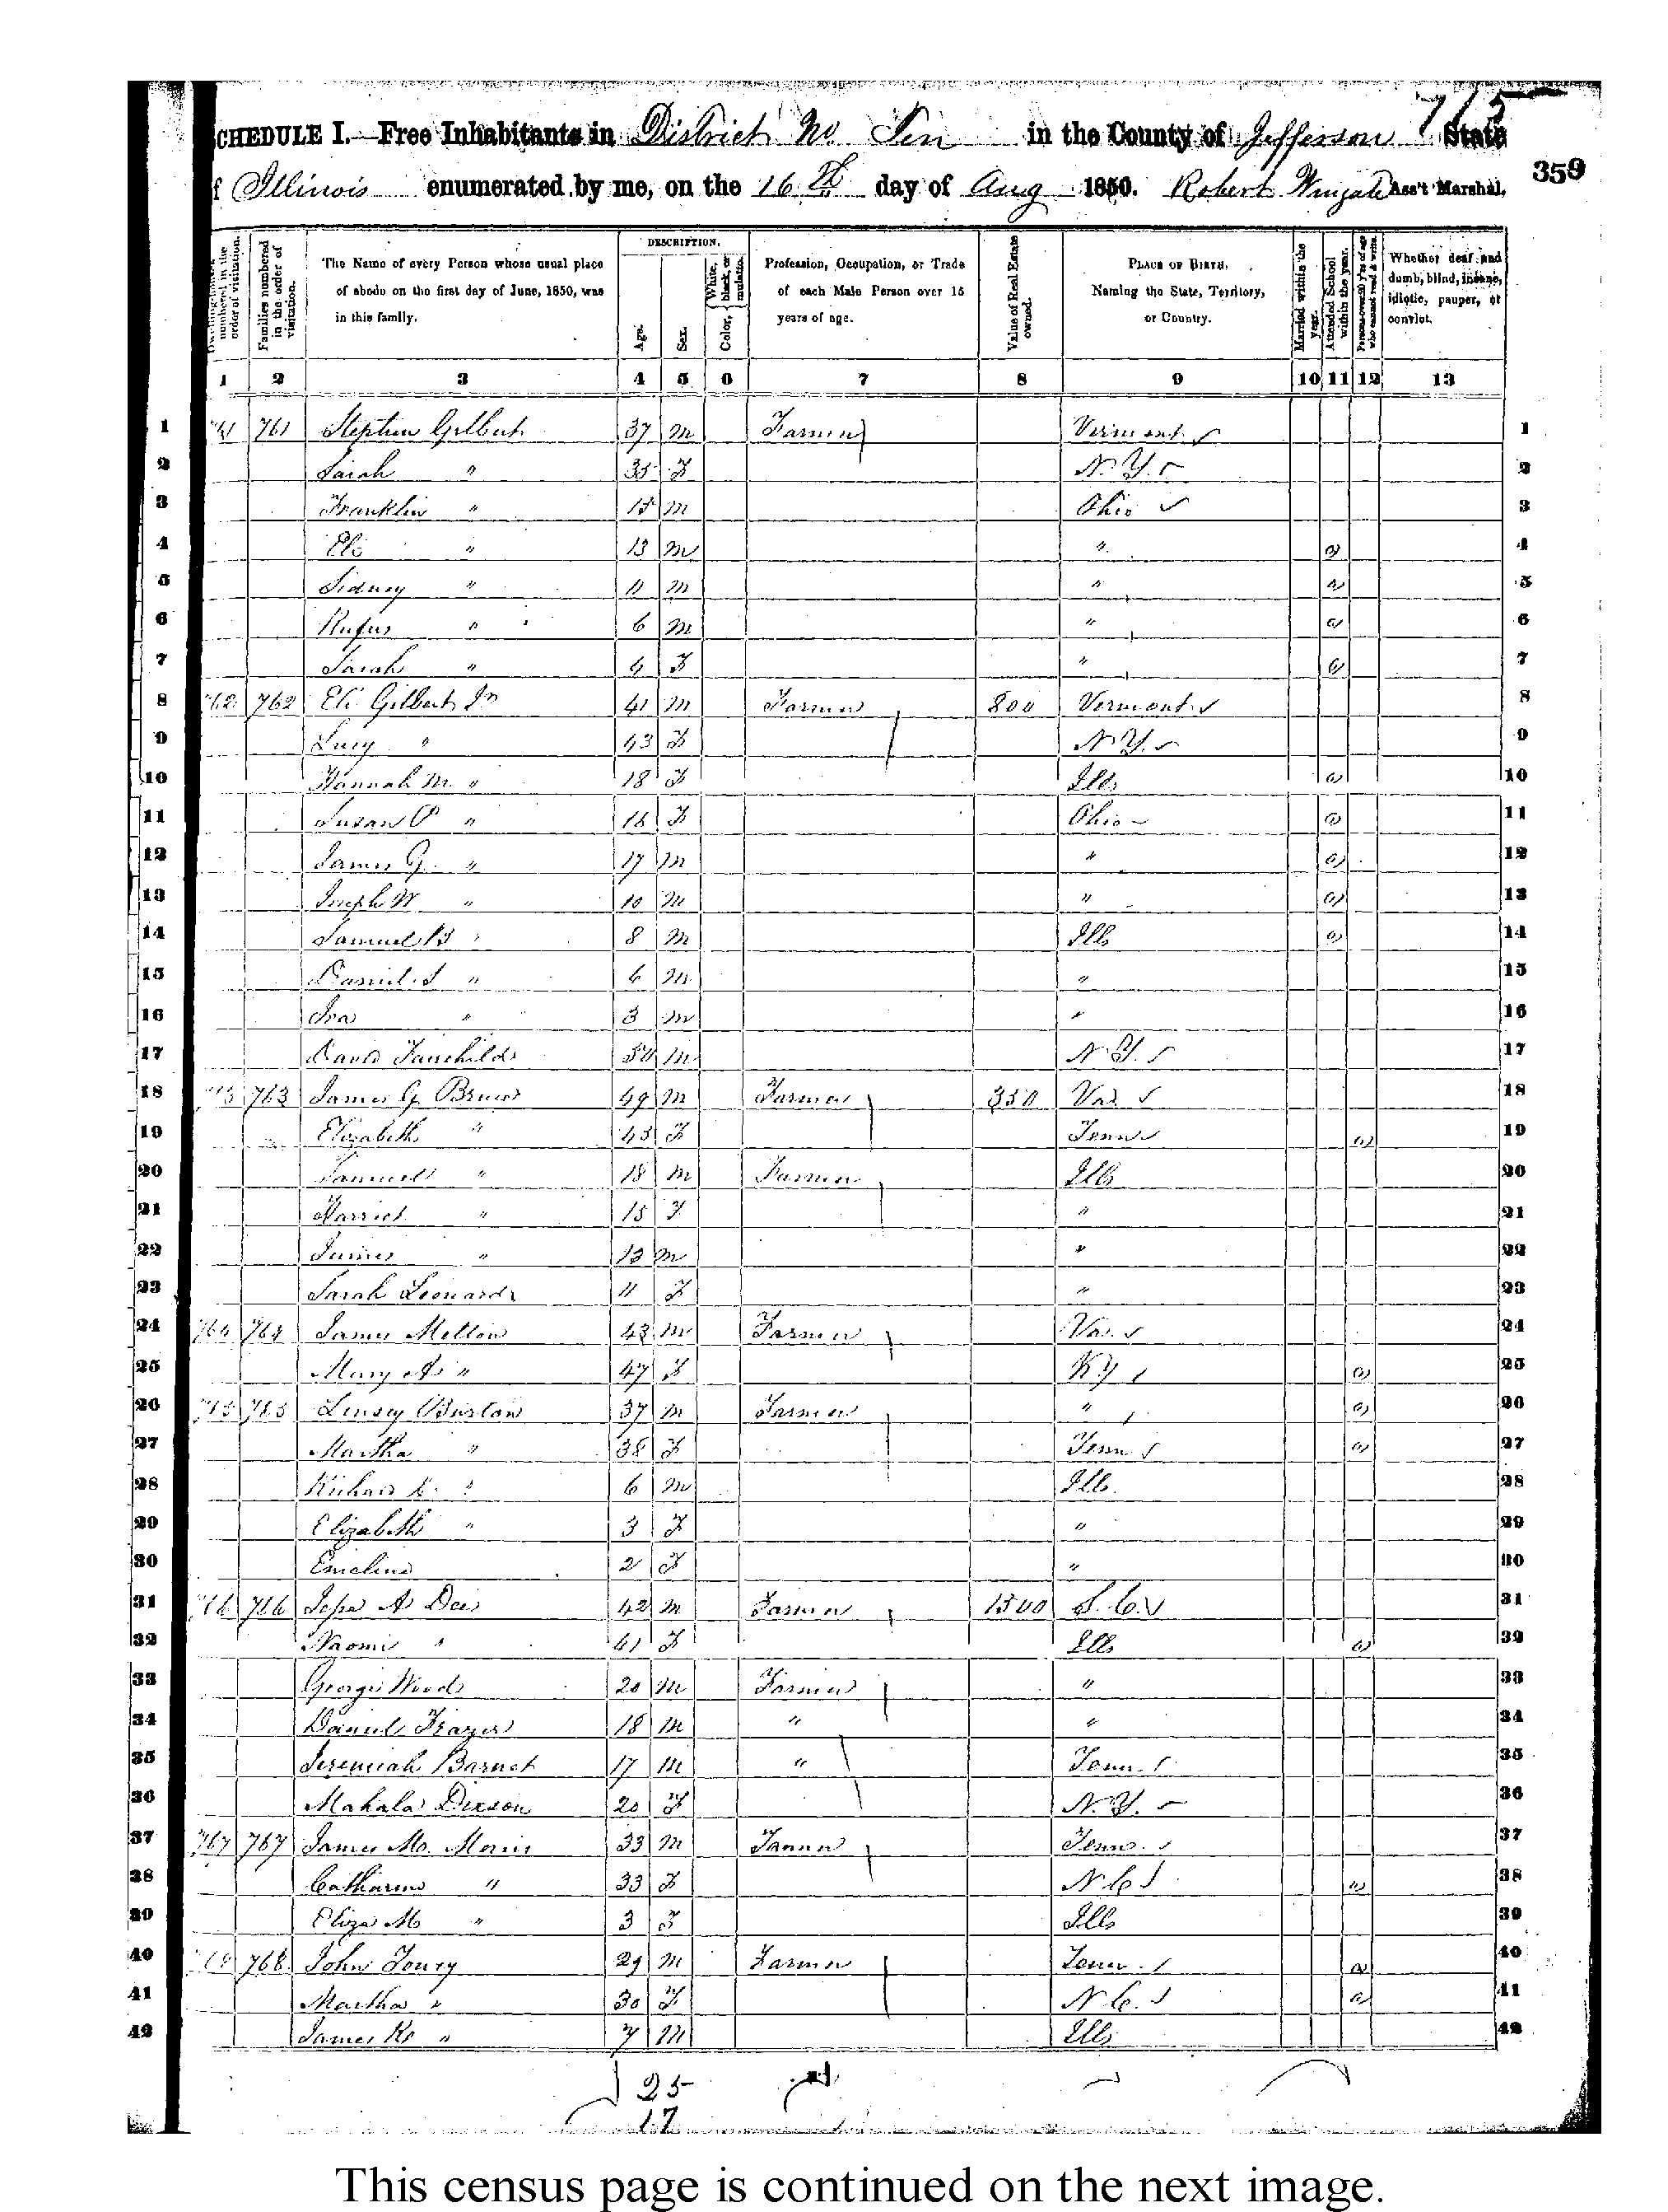 715
SCHEDULE I.—Free Inhabitants in District No Ten in the County of Jefferson State
of Illinois enumerated by me, on the 16th day of Aug 1850. Robert Wingate Ass't Marshal. 359
Dwelling-houses numbered in the order of visitation.
Families numbered in the order of visitation.
The Name of every Person whose usual place of abode on the first day of June, 1850, was in this family.
DESCRIPTION.
Age.
Sex.
Color, White, black, or mulatto.
Profession, Occupation, or Trade of each Male Person over 15 years of age.
Value of Real Estate owned.
PLACE OF BIRTH, Naming the State, Territory, or Country.
Married within the year.
Attended School within the year.
Persons over 20 y'rs of age who cannot read & write.
Whether deaf and dumb, blind, insane, idiotic, pauper, or convict.
1 2 3 4 5 6 7 8 9 10 11 12 13
1 761 761 Stephen Gilbert 37 M Farmer Vermont 1
2 Sarah " 35 F N.Y. 2
3 Franklin " 15 M Ohio 3
4 Eli " 13 M " 4
5 Sidney " 11 M " 5
6 Rufus " 6 M " 6
7 Sarah " 4 F " 7
8 762 762 Eli Gilbert Jr 41 M Farmer 800 Vermont 8
9 Lucy " 43 F N.Y. 9
10 Hannah M. " 18 F Ills 10
11 Susan P " 16 F Ohio 11
12 James G. " 17 M " 12
13 Joseph W " 10 M " 13
14 Samuel B " 8 M Ills 14
15 Daniel S " 6 M " 15
16 Ira " 3 M " 16
17 David Fairchild 50 M N.Y. 17
18 763 763 James G Bruce 49 M Farmer 350 Va 18
19 Elizabeth " 43 F Tenn 19
20 Samuel " 18 M Farmer Ills 20
21 Harriet " 15 F " 21
22 James " 12 M " 22
23 Sarah Leonard 11 F " 23
24 764 764 James Melton 43 M Farmer Va. 24
25 Mary A " 47 F Ky 25
26 765 765 Linsey Burton 37 M Farmer " 26
27 Martha " 38 F Tenn 27
28 Richard " 6 M Ills. 28
29 Elizabeth " 3 F " 29
30 Emeline 2 F " 30
31 766 766 Jesse A Dees 42 M Farmer 1500 S.C. 31
32 Naomi " 41 F Ills 32
33 George Wood 20 M Farmer " 33
34 Daniel Frazer 18 M " " 34
35 Jeremiah Barnet 17 M " Tenn. 35
36 Mahala Dixson 20 F N.Y. 36
37 767 767 James M. Morris 33 M Tanner Tenn. 37
38 Catharine " 33 F N C 38
39 Eliza M " 3 F Ills 39
40 768 768 John Toury 29 M Farmer Tenn. 40
41 Martha " 30 F N C. 41
42 James K " 7 M Ills 42
25
17
This census page is continued on the next image.